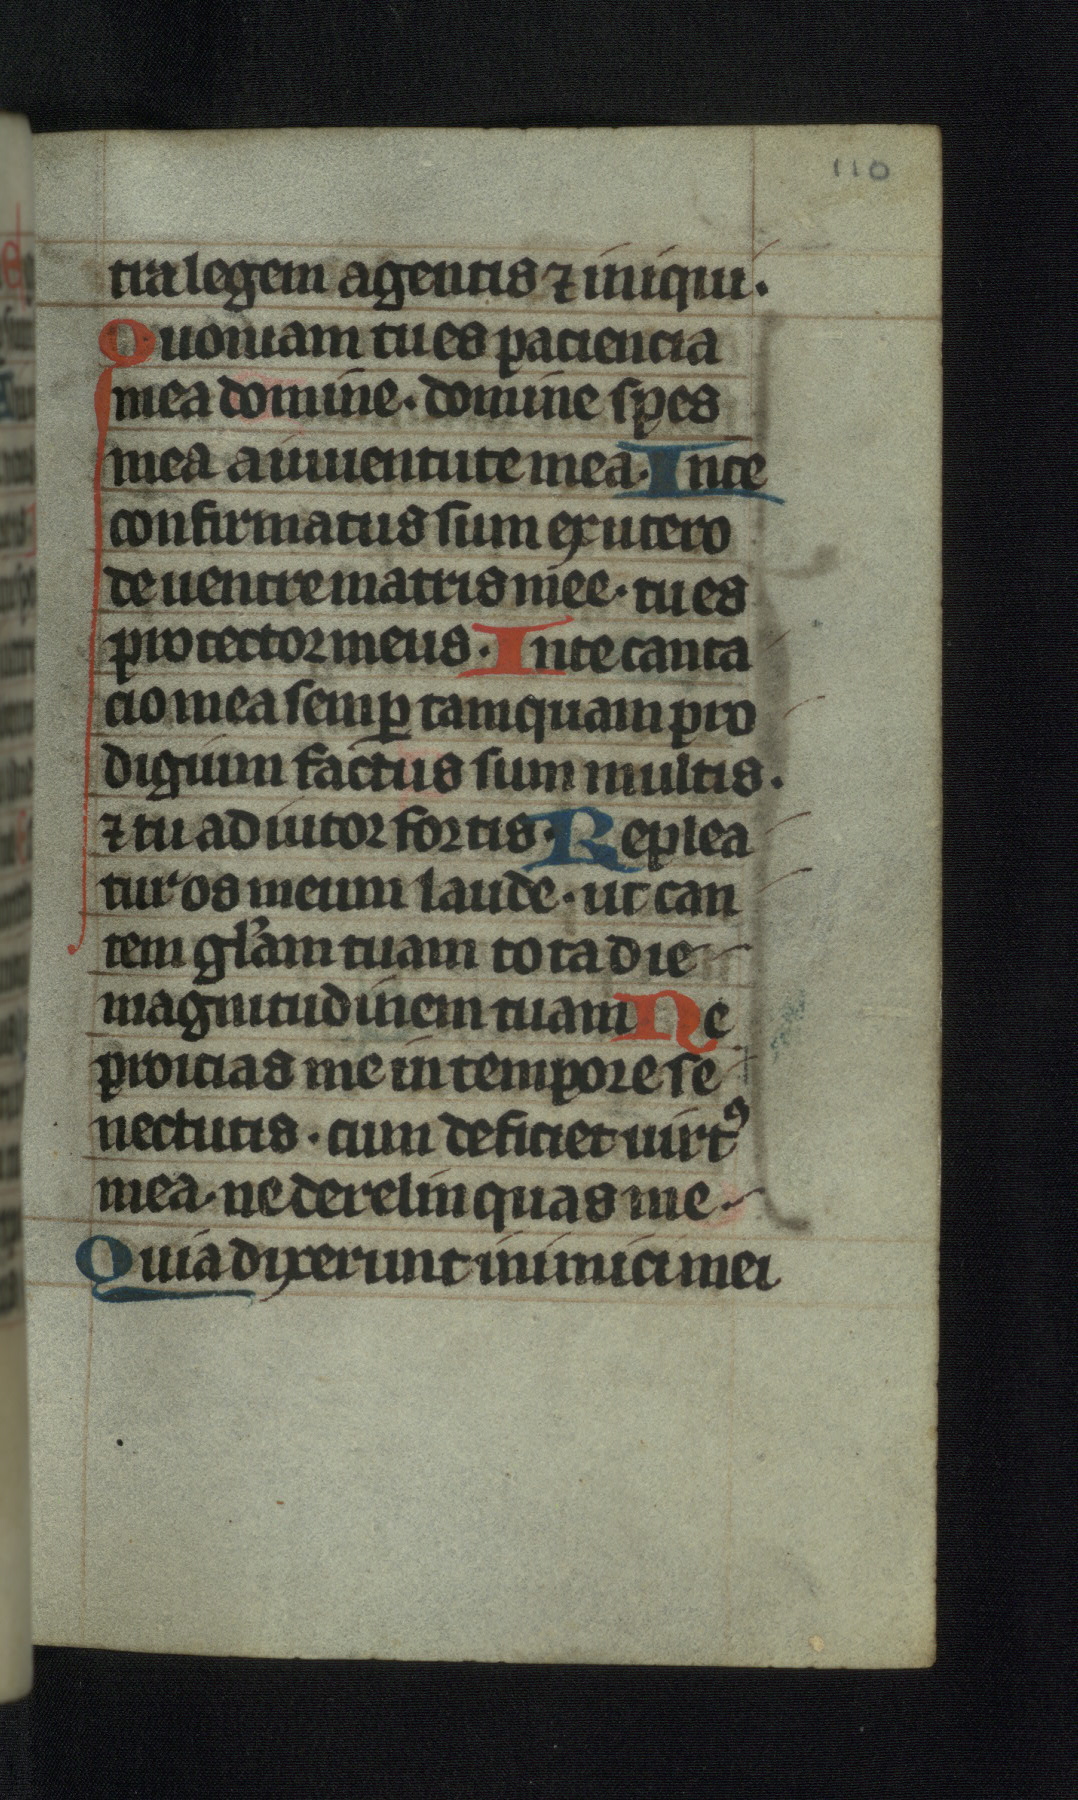 110
tra legem agentis ⁊ iniqui.
Quoniam tu es paciencia
mea domine. domine spes
mea a iuuentute mea. In te
confirmatus sum ex utero
de uentre matris mee. tu es
protector meus. In te canta
cio mea semꝑ tamquam pro
digium factus sum multis.
⁊ tu adiutor fortis. Replea
tur os meum laude. ut can
tem gl̕am tuam tota die
magnitudinem tuam Ne
proicias me in tempore se
nectutis. cum deficiet uirtꝰ
mea. ne derelinquas me.
Quia dixerunt inimici mei